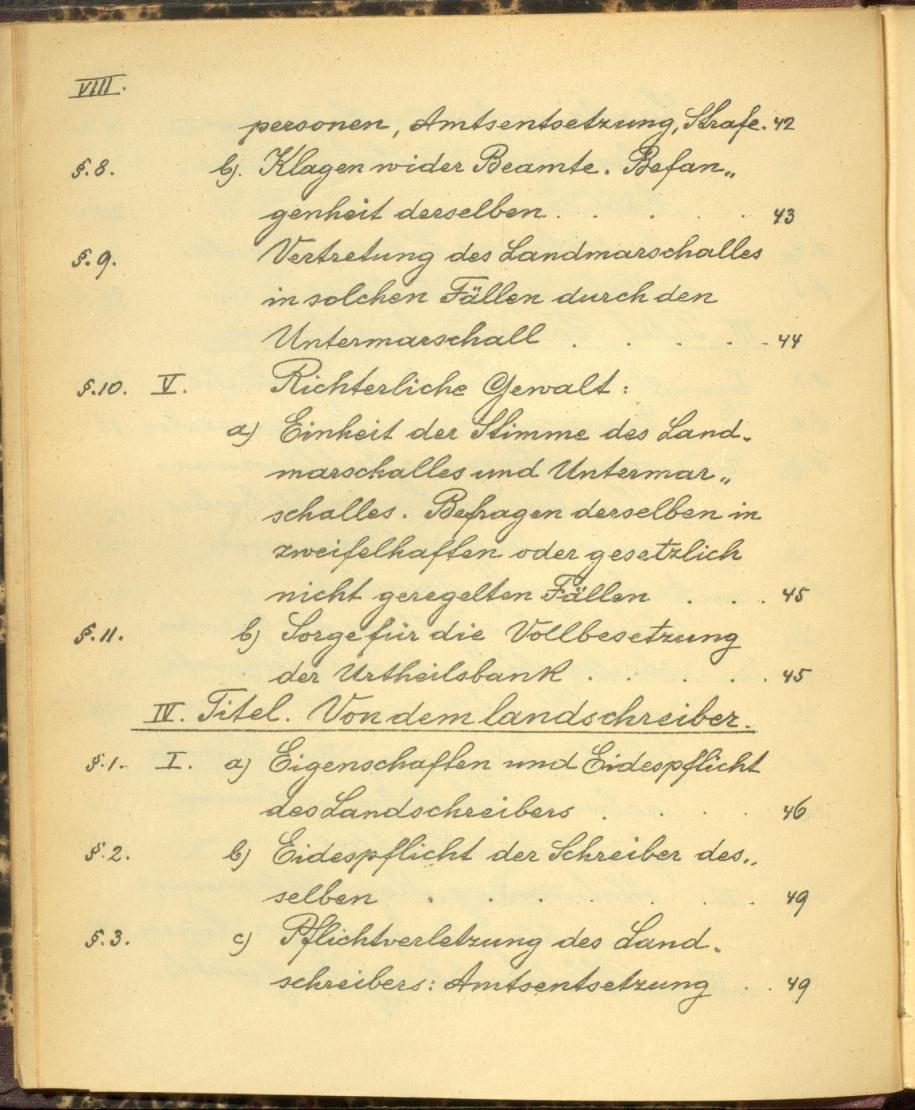 VIII.
personen, Amtsentsetzung, Strafe. 42
§. 8. b). Klagen wider Beamte. Befan„
genheit derselben . . . . . 43
§. 9. Vertretung des Landmarschalles
in solchen Fällen durch den
Untermarschall . . . . . 44
§. 10. V. Richterliche Gewalt:
a) Einheit der Stimme des Land-
marschalles und Untermar„
schalles. Befragen derselben in
zweifelhaften oder gesetzlich
nicht geregelten Fällen . . . 45
§. 11. b) Sorge für die Vollbesetzung
der Urtheilsbank . . . . 45
IV. Titel. Von dem landschreiber.
§. 1. I. a) Eigenschaften und Eidespflicht
des Landschreibers . . . . 46
§. 2. b) Eidespflicht der Schreiber des„
selben . . . . . . . 49
§. 3. c) Pflichtverletzung des Land-
schreibers: Amtsentsetzung . . 49